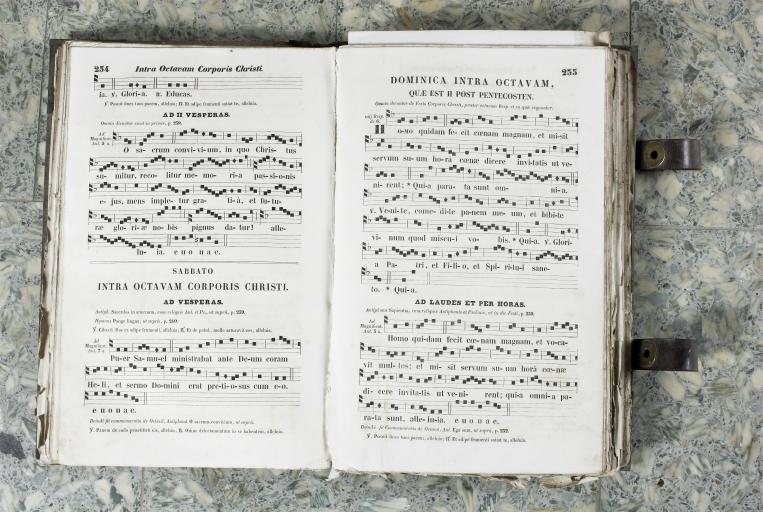 234 Intra Octavam Corporis Christi.
ia. ℣. Glori-a. ℟. Educas.
℣. Posuit fines tuos pacem, alleluia; ℟. Et adipe frumenti satiat te, alleluia.
AD II VESPERAS.
Omnia dicuntur ut in primis, p. 229.
Ad Magnificat. Ant.
O sa- crum convi-vi-um, in quo Chris- tus
su- mitur, reco- litur me- mo- ri-a pas-si-o-nis
e- jus, mens imple- tur gra- ti-â, et fu-tu-
ræ glo-ri-æ no-bis pignus da-tur! alle-
lu- ia. e u o u a e.
SABBATO
INTRA OCTAVAM CORPORIS CHRISTI.
AD VESPERAS.
Hymnus Pange lingua, ut suprà, p. 230.
℣. Cibavit illos ex adipe frumenti, alleluia; ℟. Et de petrâ, melle saturavit eos, alleluia.
Ad Magnificat. Ant. 7
Pu-er Sa-mu-el ministrabat ante De-um coram
He-li, et sermo Do-mini erat pre-ti-o-sus cum e-o.
e u o u a e.
Deindè fit commemoratio de Octavâ, Antiphonâ O sacrum convivium, ut suprà.
℣. Panem de cœlo præstitisti eis, alleluia; ℟. Omne delectamentum in se habentem, alleluia.
235
DOMINICA INTRA OCTAVAM,
QUÆ EST II POST PENTECOSTEN.
Omnia dicuntur de Festo Corporis Christi, præter octavum Resp. et ea quæ sequuntur.
Resp. de 6.
Homo quidam fe- cit cœnam magnam, et mi-sit
servum su-um ho-râ cœnæ dicere invi-tatis ut ve-
ni- rent; * Qui-a para- ta sunt om- ni-a.
℣. Ve-ni-te, come-di-te pa-nem me-um, et bibi-te
vi- num quod miscu-i vo- bis. * Qui-a. ℣. Glori-
a Pa- tri, et Fi-li-o, et Spi-ri-tu-i sanc-
to. * Qui-a.
AD LAUDES ET PER HORAS.
Ad Magnificat. Ant.
Homo qui-dam fecit cœ-nam magnam, et vo-ca-
vit mul-tos; et mi- sit servum su-um horâ cœ-næ
di- cere invita-tis ut ve-ni- rent; qui-a omni-a pa-
ra-ta sunt, alle-lu-ia. e u o u a e.
Deindè fit Commemoratio de Octavâ, Ant. Ego sum, ut suprà, p. 232.
℣. Posuit fines tuos pacem, alleluia; ℟. Et adipe frumenti satiat te, alleluia.